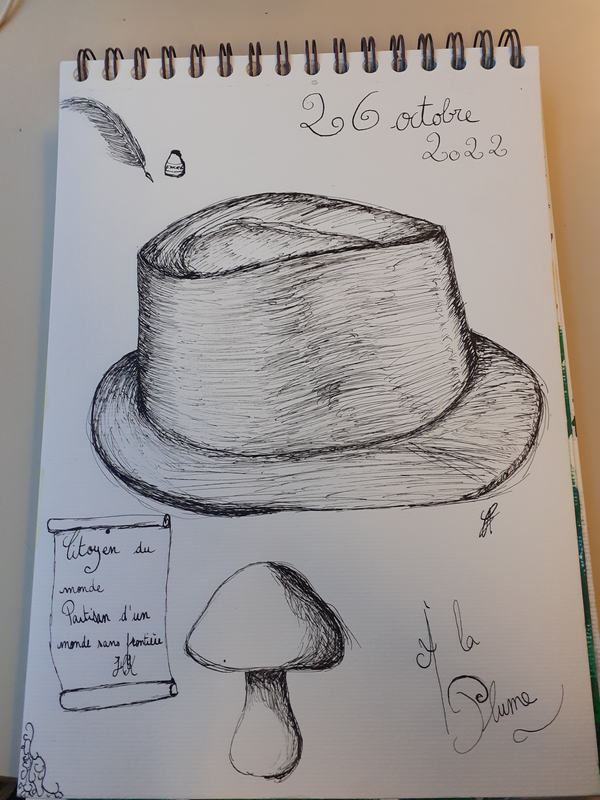 26 octobre
2022
Citoyen du
monde
Partisan d'un
monde sans frontière
À la
Plume